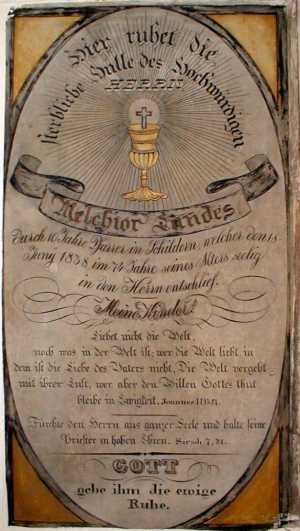 Hier ruhet die
sterbliche Hülle des Hochwürdigen
HERRN
Melchior Landes
Durch 16 Jahre Pfarrer in Schildern, welcher den 18
Juny 1838 im 74 Jahre seines Alters seelig
in den Herrn entschlief.
Meine Kinder!
Liebet nicht die Welt,
noch was in der Welt ist; wer die Welt liebt in
dem ist die Liebe des Vaters nicht. Die Welt vergeht
mit ihrer Lust, wer aber den Willen Gottes thut
bleibt in Ewigkeit. Joannes
Fürchte den Herrn aus ganzer Seele und halte seine
Priester in hohen Ehren. Sirach 7,
GOTT
gebe ihm die ewige
Ruhe.